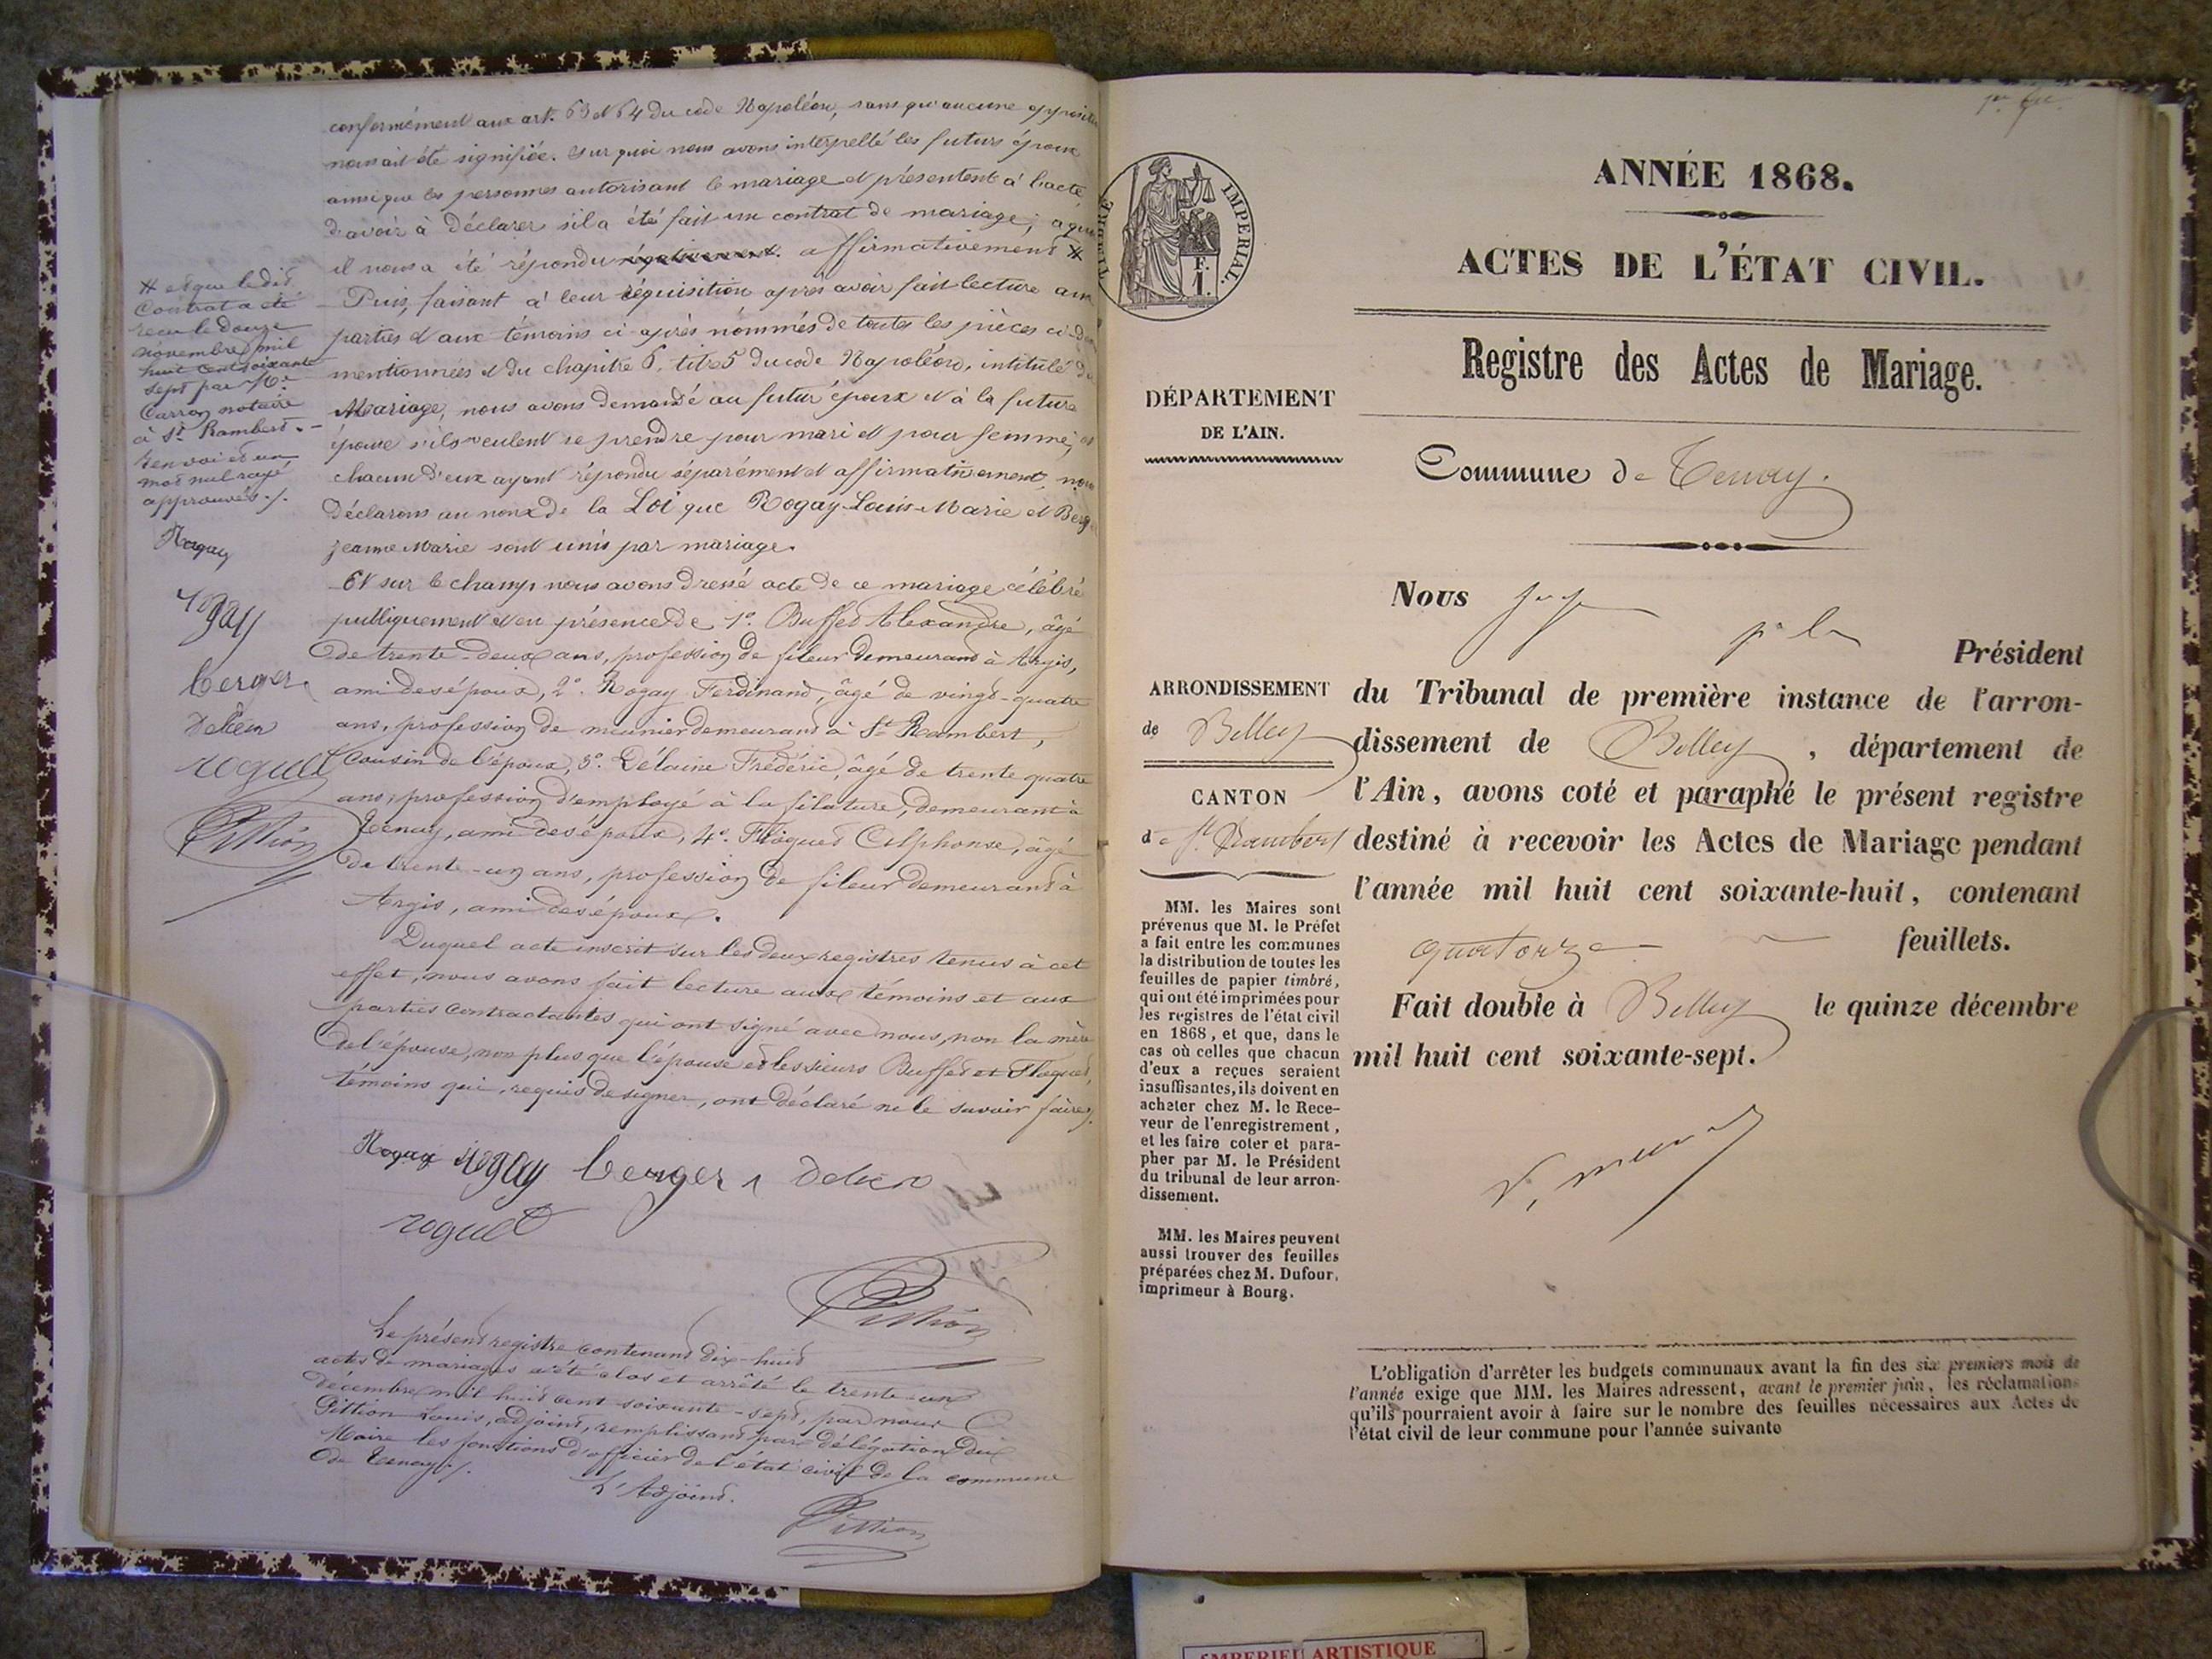 conformément aux art. 63 et 64 du code Napoléon, sans qu'aucune opposition
nous ait été signifiée. Sur quoi nous avons interpellé les futurs époux
ainsi que les personnes autorisant le mariage et présentent à l'acte
d'avoir à déclarer s'il a été fait un contrat de mariage; à quoi
il nous a été répondu négativement. affirmativement #
Puis, faisant à leur réquisition après avoir fait lecture aux
parties et aux témoins ci-après nommés de toutes les pièces ci-dessus
mentionnées et du chapitre 6, titre 5 du code Napoléon, intitulé du
Mariage, nous avons demandé au futur époux et à la future
épouse s'ils veulent se prendre pour mari et pour femme; et
chacun d'eux ayant répondu séparément et affirmativement, nous
Déclarons au nom de la Loi que Rogay Louis-Marie et Berger
Jeanne Marie sont unis par mariage.
Et sur le champ nous avons dressé acte de ce mariage célébré
publiquement et en présence de 1° Buffet Alexandre, âgé
de trente-deux ans, profession de fileur demeurant à Argis,
ami des époux, 2° Rogay Ferdinand, âgé de vingt-quatre
ans, profession de meunier demeurant à St Rambert,
Cousin de l'époux, 3° Délaine Frédéric, âgé de trente quatre
ans, profession d'employé à la filature, demeurant à
Tenay, ami des époux, 4° Alphonse, âgé
de trente-un ans, profession de fileur demeurant à
Argis, ami des époux.
Duquel acte inscrit sur les deux registres tenus à cet
effet, nous avons fait lecture aux témoins et aux
parties contractantes qui ont signé avec nous, non la mère
de l'épouse, non plus que l'épouse et les sieurs Buffet et
témoins qui, requis de signer, ont déclaré ne le savoir faire.
# et que le dit
Contrat a été
reçu le douze
novembre mil
huit cent soixante
sept par Me
Carron notaire
à St Rambert.
Renvoi et un
mot nul rayé
approuvés ./.
Rogay
rogay
berger
roguet
Pittion
Rogay rogay berger
roguet
Pittion
Le présent registre contenant dix-huit
actes de mariages a été clos et arrêté le trente-un
décembre mil huit cent soixante-sept, par nous
Pittion Louis, adjoint, remplissant par délégation du
Maire les fonctions d'officier de l'état civil de la commune
de Tenay ./.
L'Adjoint.
Pittion
TIMBRE IMPERIAL.
F.
1.
DÉPARTEMENT
DE L'AIN.
ARRONDISSEMENT
de Belley
CANTON
de St Rambert
MM. les Maires sont
prévenus que M. le Préfet
a fait entre les communes
la distribution de toutes les
feuilles de papier timbré,
qui ont été imprimées pour
les registres de l'état civil
en 1868, et que, dans le
cas où celles que chacun
d'eux a reçues seraient
insuffisantes, ils doivent en
acheter chez M. le Rece-
veur de l'enregistrement,
et les faire coter et para-
pher par M. le Président
du tribunal de leur arron-
dissement.
MM. les Maires peuvent
aussi trouver des feuilles
préparées chez M. Dufour,
imprimeur à Bourg.
ANNÉE 1868.
ACTES DE L'ÉTAT CIVIL.
Registre des Actes de Mariage.
Commune de Tenay.
Nous Juge pr le Président
du Tribunal de première instance de l'arron-
dissement de Belley, département de
l'Ain, avons coté et paraphé le présent registre
destiné à recevoir les Actes de Mariage pendant
l'année mil huit cent soixante-huit, contenant
quatorze feuillets.
Fait double à Belley le quinze décembre
mil huit cent soixante-sept.
L'obligation d'arrêter les budgets communaux avant la fin des six premiers mois de
l'année exige que MM. les Maires adressent, avant le premier juin, les réclamations
qu'ils pourraient avoir à faire sur le nombre des feuilles nécessaires aux Actes de
l'état civil de leur commune pour l'année suivante
ARTISTIQUE